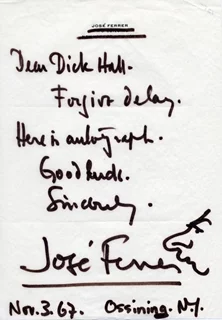 JOSÉ FERRER
Dear Dick Hall.
Forgive delay.
Here is autograph.
Good luck.
Sincerely.
José Ferrer
Nov. 3. 67. Ossining. N.Y.